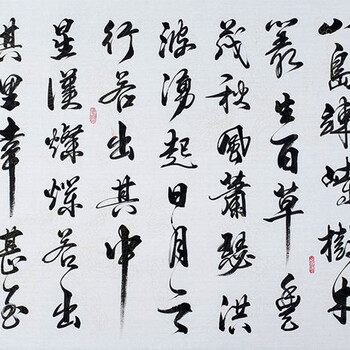 山島竦峙樹木
叢生百草豐
茂秋風蕭瑟洪
波湧起日月之
行若出其中
星漢燦爛若出
其里幸甚至